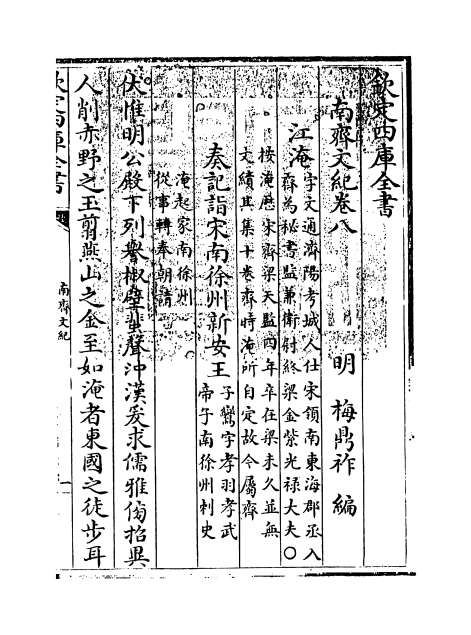 欽定四庫全書
南齊文紀卷八
明 梅鼎祚 編
江淹
字文通濟陽考城人仕宋領南東海郡丞入
齊為秘書監兼衛尉終梁金紫光祿大夫○
按淹歷宋齊梁天監四年卒在梁未久並無
文績其集十卷齊時淹所自定故今屬齊
奏記詣宋南徐州新安王
子鸞字孝羽孝武
帝子南徐州刺史
淹起家南徐州
從事轉奉朝請
伏惟明公殿下列譽椒壁蜚聲沖漢爰求儒雅傍招異
人削赤野之玉剪燕山之金至如淹者東國之徒步耳
欽定四庫全書
南齊文紀
一